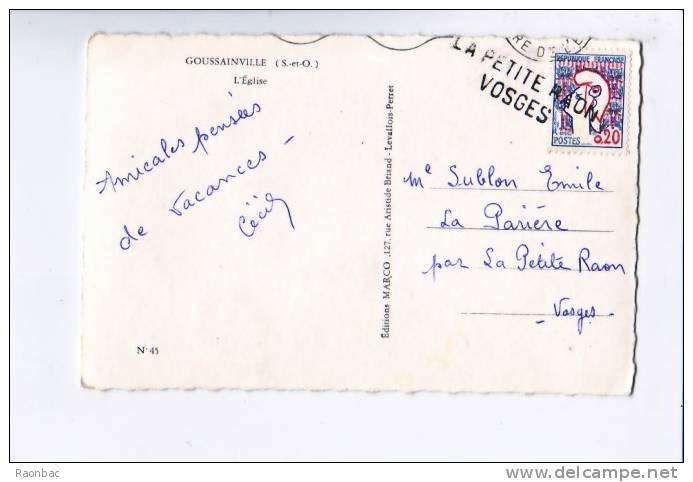 GOUSSAINVILLE (S.-et-O.)
L'Église
Amicales pensées
de vacances -
Cécile
N° 45
Éditions MARCO, 127, rue Aristide Briand - Levallois-Perret
LA PETITE RAON
VOSGES
REPUBLIQUE FRANÇAISE
POSTES
0,20
Me Sublon Emile
La Parière
par La Petite Raon
- Vosges -
Raonbac
©delcampe.net